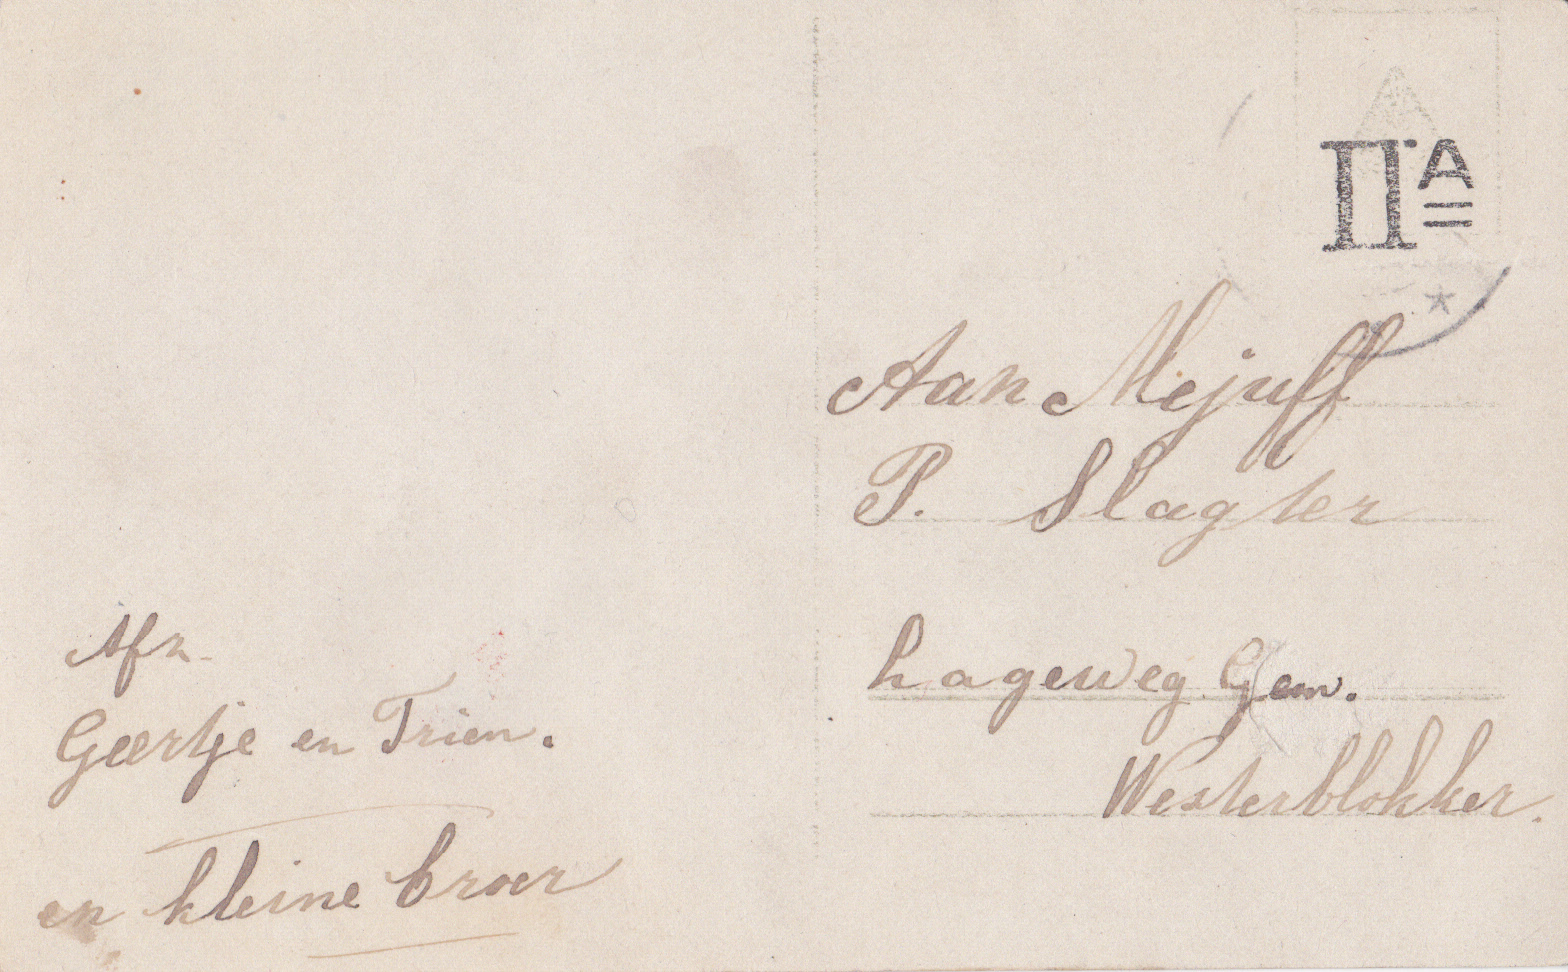 IIA
Aan Mejuff
P. Slagter
Lageweg Gem.
Westerblokker.
Afz.
Geertje en Trien.
en kleine broer